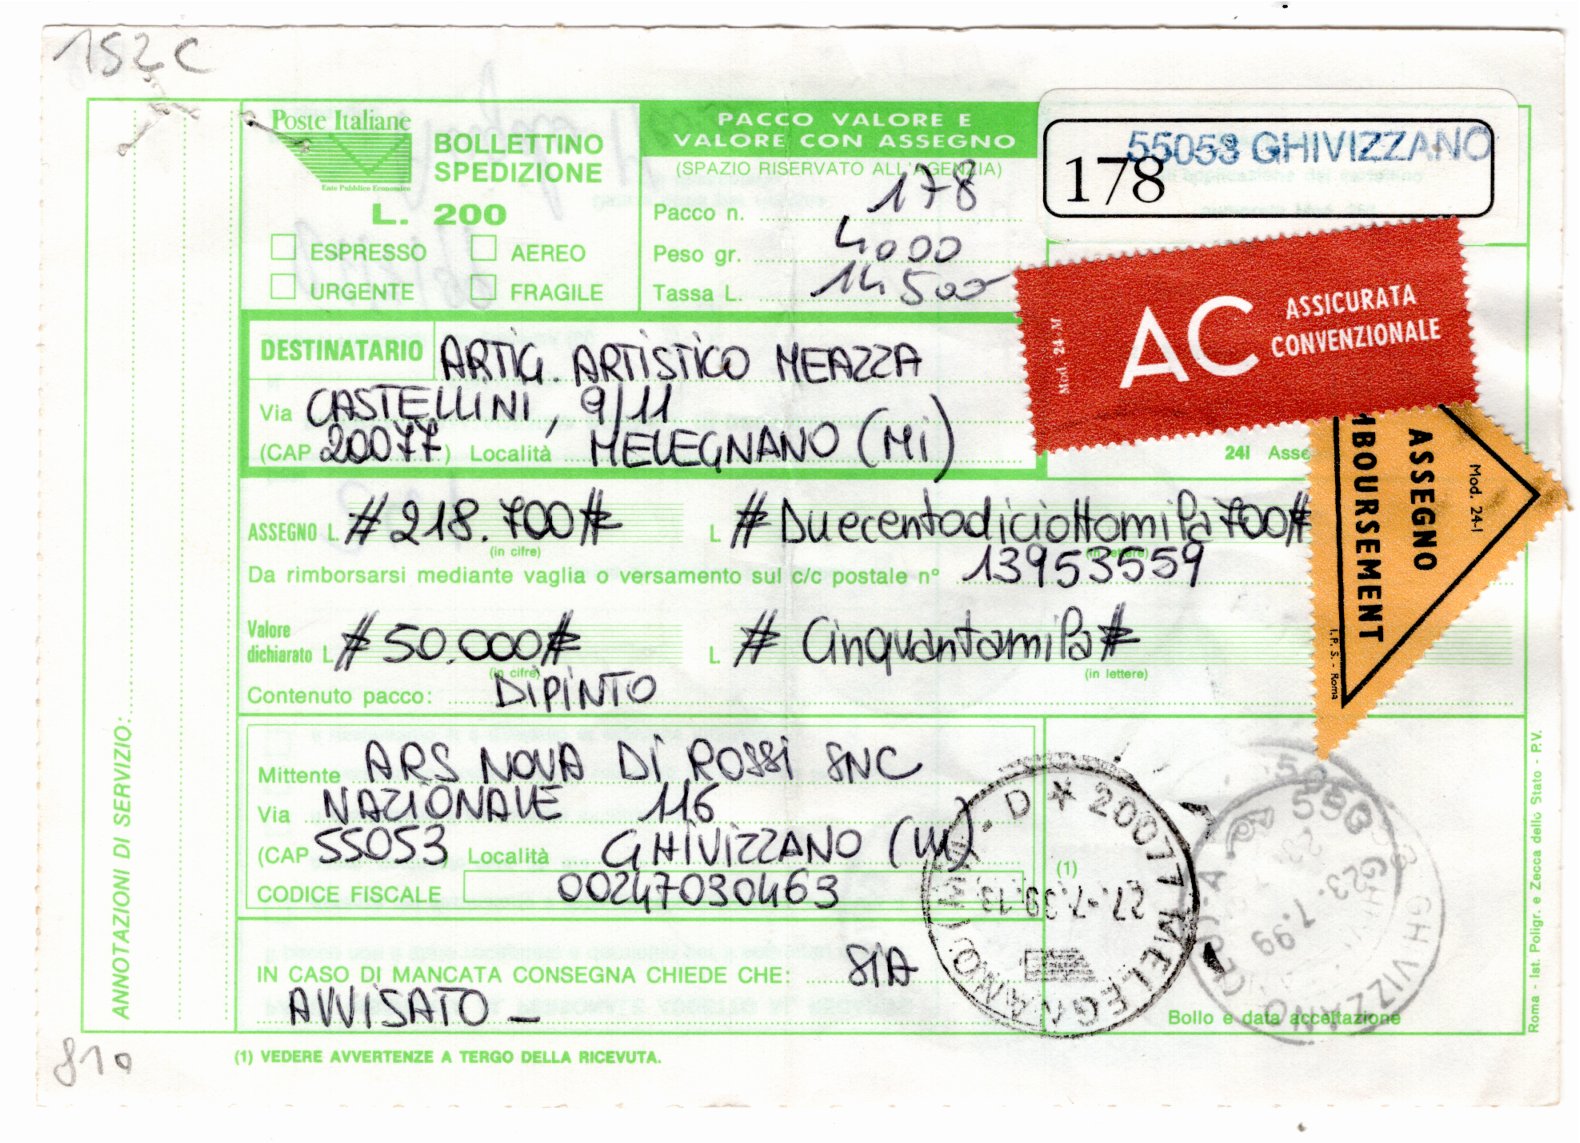 152C
Poste Italiane
Ente Pubblico Economico
BOLLETTINO
SPEDIZIONE
L. 200
ESPRESSO
AEREO
URGENTE
FRAGILE
PACCO VALORE E
VALORE CON ASSEGNO
(SPAZIO RISERVATO ALL'AGENZIA)
Pacco n. 178
Peso gr. 4000
Tassa L. 14500
55053 GHIVIZZANO
178
Mod. 24-M
AC
ASSICURATA
CONVENZIONALE
DESTINATARIO ARTIG. ARTISTICO MEAZZA
Via CASTELLINI, 9/11
(CAP 20077) Località MELEGNANO (MI)
24I Asse
ASSEGNO
MBOURSEMENT
Mod. 24-I
I.P.S. - Roma
ASSEGNO L. #218.700# L. #Duecentodiciottomila700#
(in cifre)
Da rimborsarsi mediante vaglia o versamento sul c/c postale n° 13953559
Valore
dichiarato L. #50.000# L. #Cinquantamila#
(in cifre) (in lettere)
Contenuto pacco: DIPINTO
Mittente ARS NOVA DI ROSSI SNC
Via NAZIONALE 116
(CAP 55053 Località GHIVIZZANO (LU)
CODICE FISCALE 00247030463
(1)
20077 MELEGNANO (MI) - D
27.-7.99.13
55053 GHIVIZZANO
23. 7.99
IN CASO DI MANCATA CONSEGNA CHIEDE CHE: SIA
AVVISATO -
Bollo e data accettazione
ANNOTAZIONI DI SERVIZIO:
Roma - Ist. Poligr. e Zecca dello Stato - P.V.
(1) VEDERE AVVERTENZE A TERGO DELLA RICEVUTA.
810